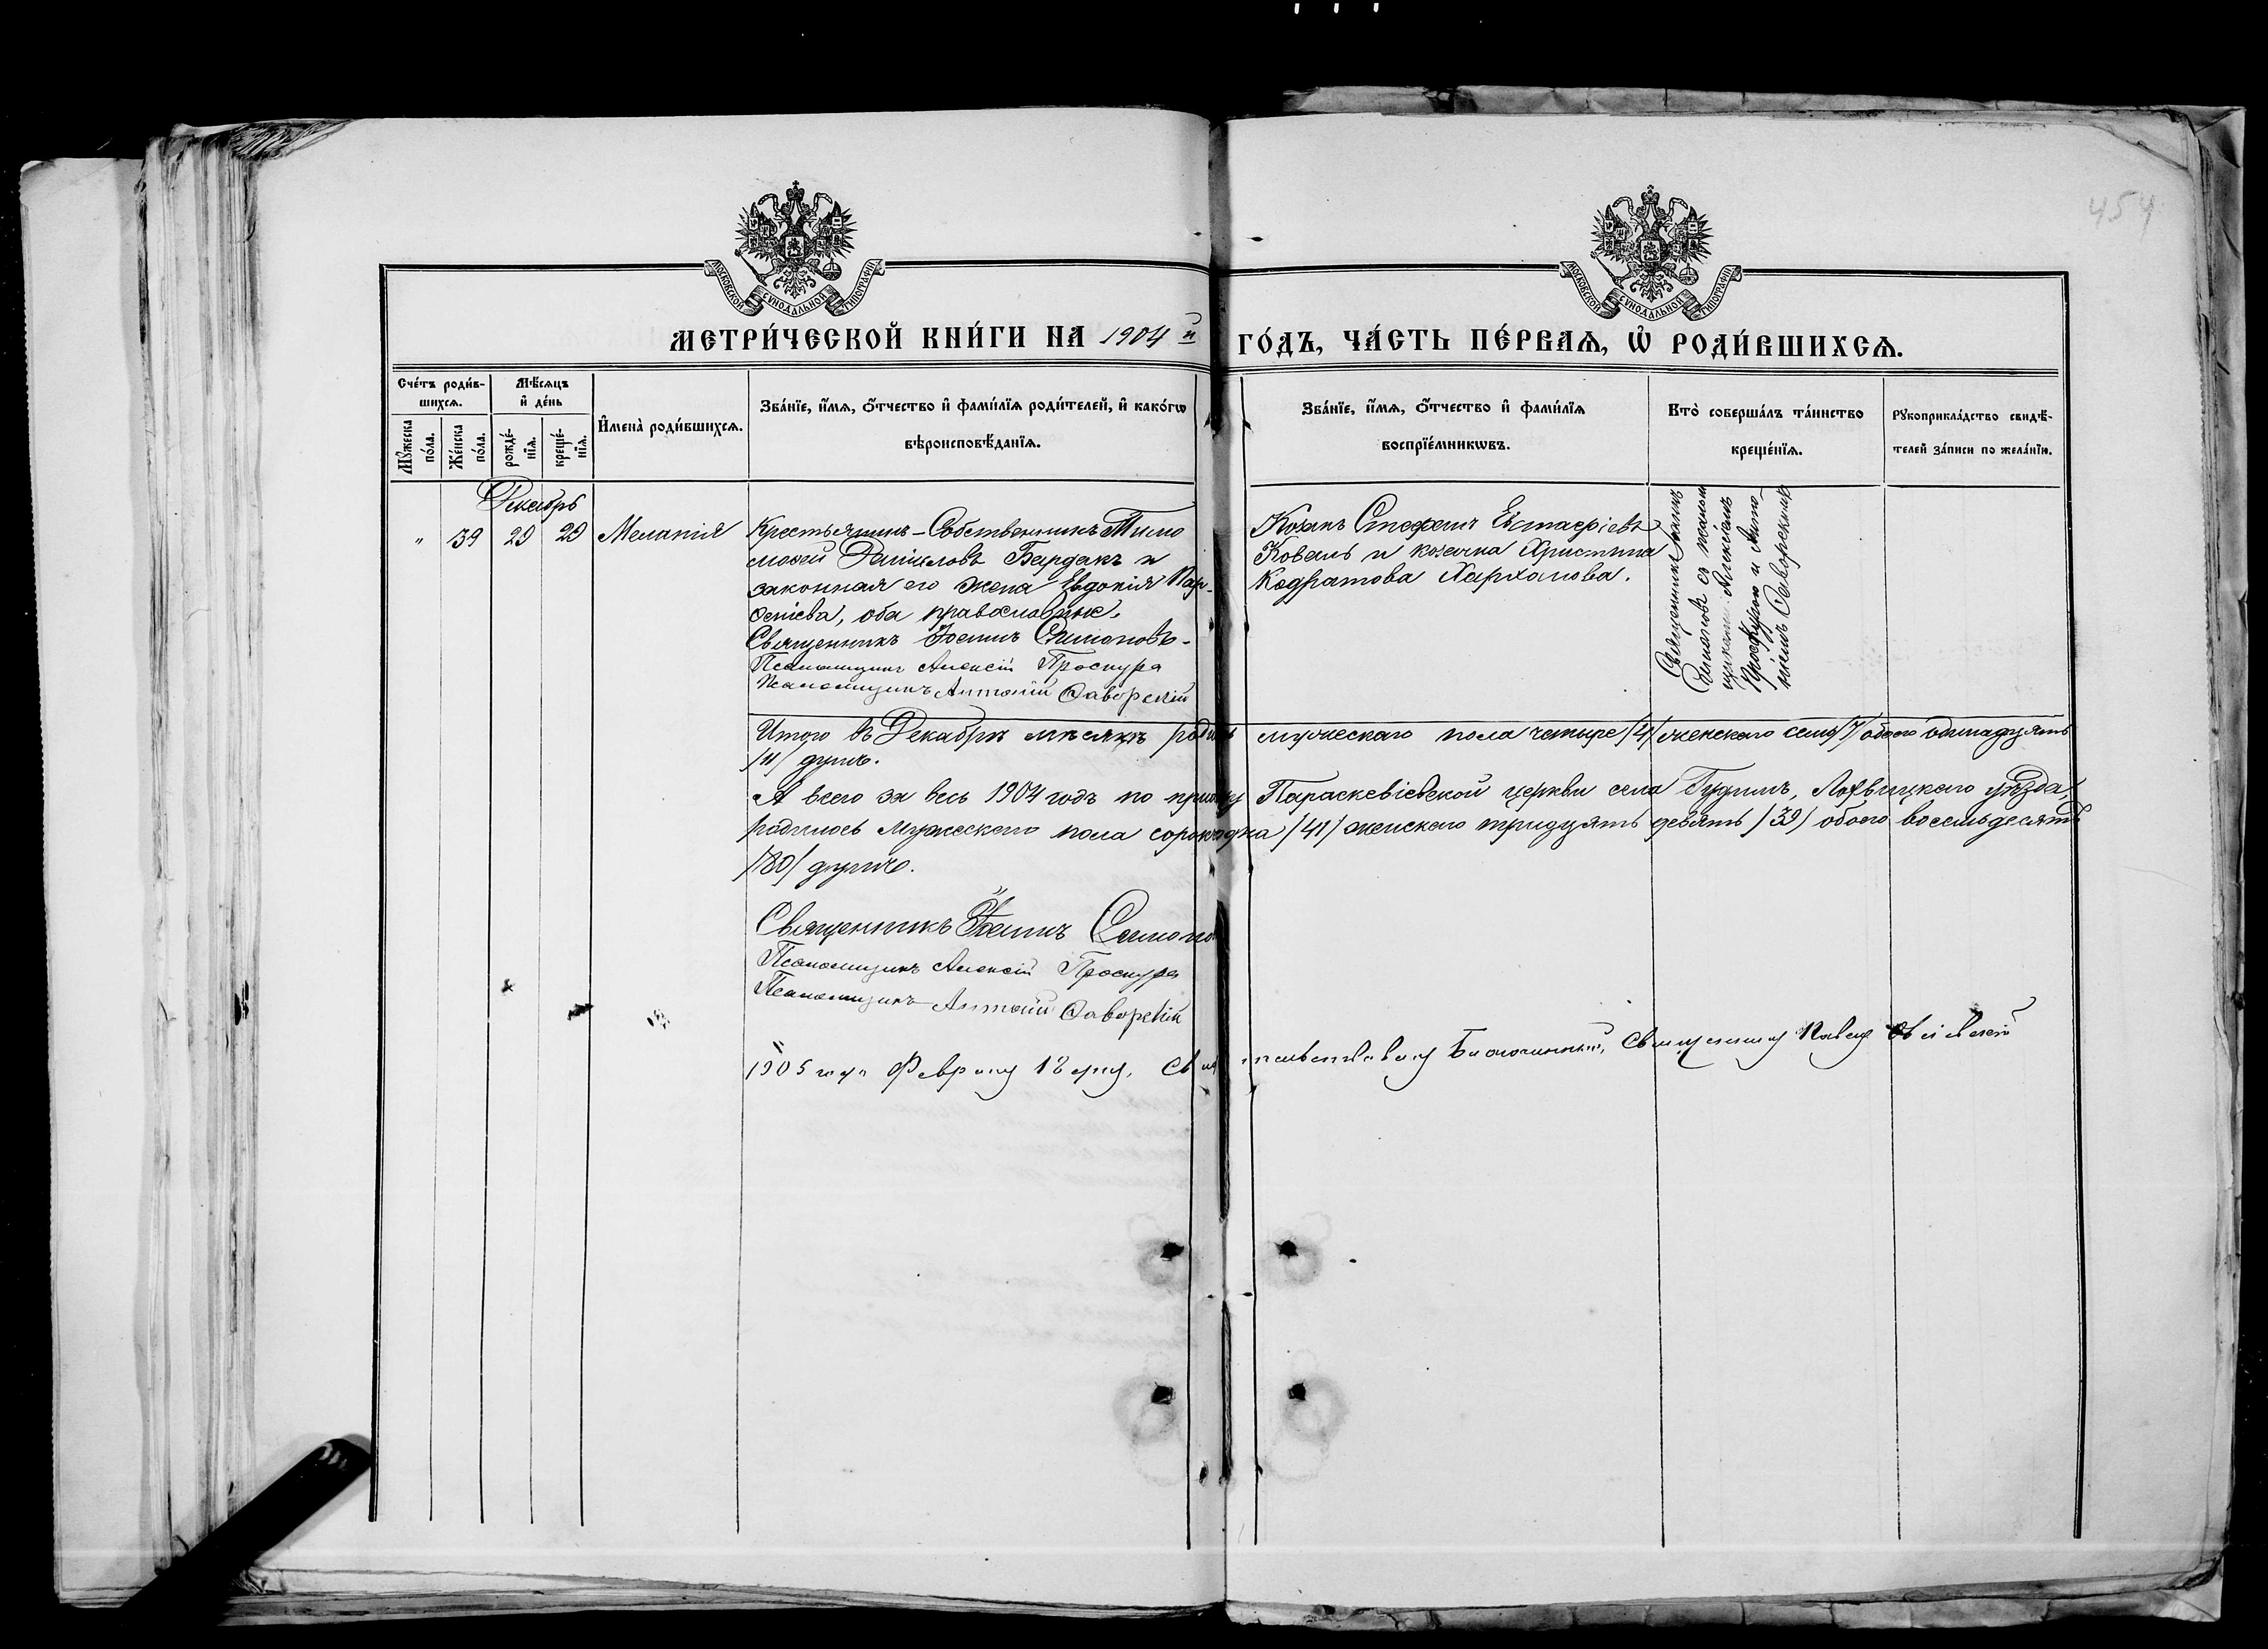 454
МОСКОВСКОЙ СѴНОДАЛЬНОЙ ТИПОГРАФІИ
МОСКОВСКОЙ СѴНОДАЛЬНОЙ ТИПОГРАФІИ
МЕТРИ́ЧЕСКОЙ КНИ́ГИ НА 1904 й ГО́ДЪ, ЧА́СТЬ ПЕ́РВАЯ, Ѡ҆ РОДИ́ВШИХСЯ.
Сче́тъ роди́в-
шихся.
Мꙋ́жеска по́ла.
Же́нска по́ла.
Мѣ́сяцъ
и҆ де́нь
рожде́-
нїя.
креще́-
нїя.
И҆мена̀ роди́вшихся.
Зва́нїе, и҆́мя, ѻ҆́тчество и҆ фами́лїя роди́телей, и҆ како́гѡ
вѣроисповѣ́данїя.
Зва́нїе, и҆́мя, ѻ҆́тчество и҆ фами́лїя
воспрїе́мникѡвъ.
Кто̀ соверша́лъ та́инство
креще́нїя.
Рꙋкоприкла́дство свидѣ́-
телей за́писи по жела́нїю.
Декабрь
" 39 29 29 Меланія
Крестьянинъ-Собственникъ Тимо
ѳей Даніиловъ Бардакъ и
законная его жена Евдокія Пар-
ѳеніева, оба православные.
Священникъ Іоаннъ Симоновъ
Псаломщикъ Алексій Проскура
Псаломщикъ Антоній Яворскій
Козакъ Стефанъ Евстафіевъ
Коваль и козачка Христина
Кодратова Харханова.
Священникъ Іоаннъ
Симоновъ съ псалом
щиками Алексіемъ
Проскурою и Анто
ніемъ Яворскимъ
Итого въ Декабрѣ мѣсяцѣ родил мужескаго пола четыре /4/ женскаго семь /7/ обоего одинадцять
/11/ душъ.
А всего за весь 1904 годъ по приходу Параскевіевской церкви села Гудимъ, Лохвицкаго уѣзда,
родилось мужескаго пола сорокъ одна /41/ женскаго тридцять девять /39/ обоего восемьдесятъ
/80/ душъ.
Священникъ Іоаннъ Симоно
Псаломщикъ Алексій Проскура
Псаломщикъ Антоній Яворскій
1905 года Февраля 18 дня, свидѣтельствовалъ Благочинный, Священникъ Павелъ